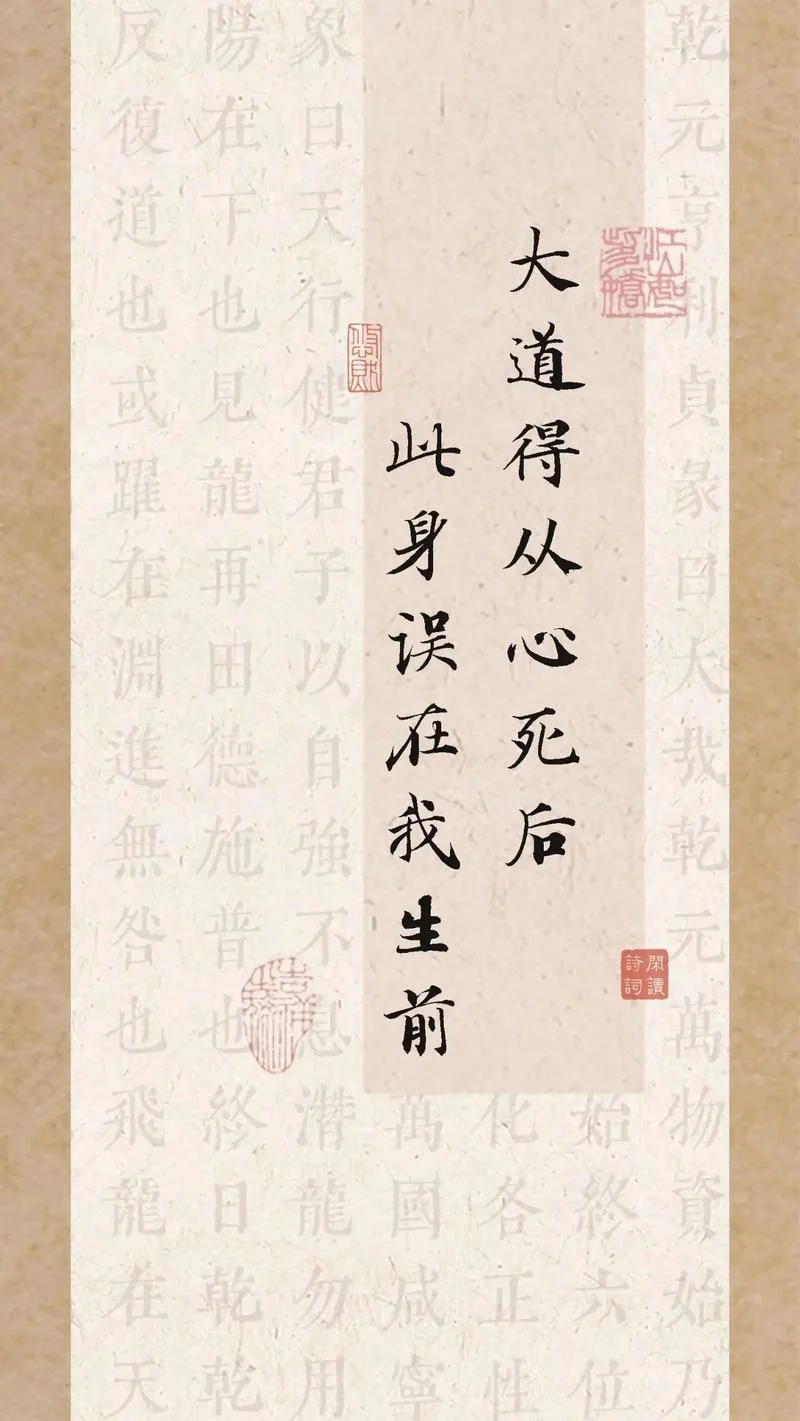 大道得从心死后
此身误在我生前
閑讀
詩詞
乾元亨利貞彖曰大哉乾元萬物資始乃
始終六位
化各正性
萬國咸寧
象曰天行健君子以自強不息潛龍勿用
陽在下也見龍再田德施普也終日乾乾
反復道也或躍在淵進無咎也飛龍在天